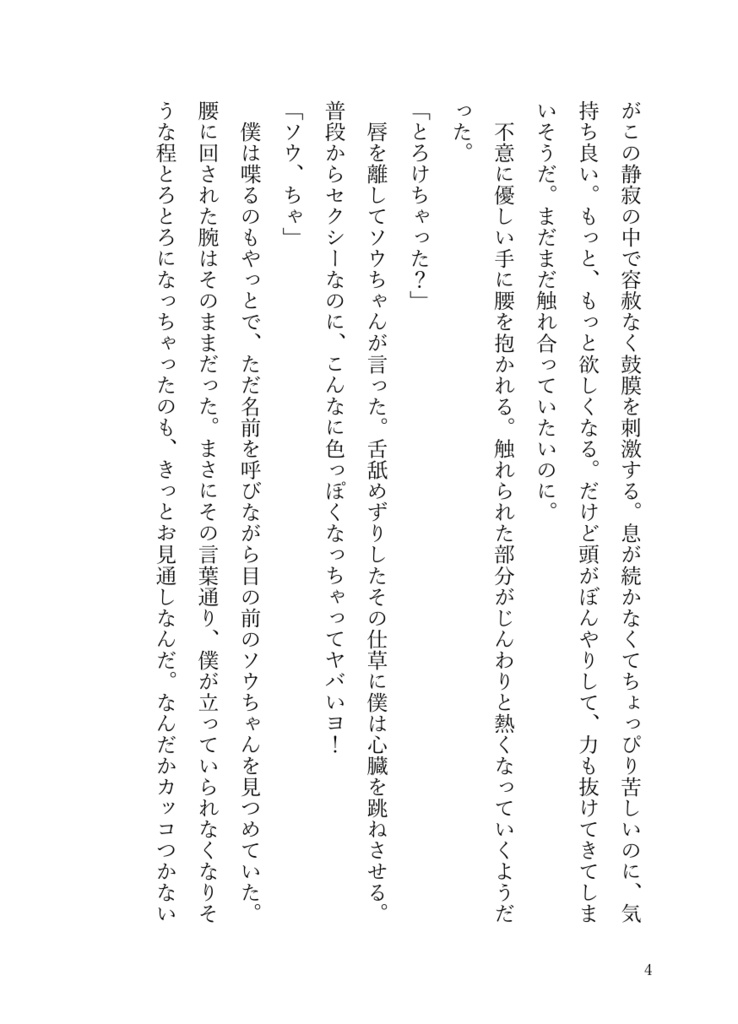 がこの静寂の中で容赦なく鼓膜を刺激する。息が続かなくてちょっぴり苦しいのに、気
持ち良い。もっと、もっと欲しくなる。だけど頭がぼんやりして、力も抜けてきてしま
いそうだ。まだまだ触れ合っていたいのに。
　不意に優しい手に腰を抱かれる。触れられた部分がじんわりと熱くなっていくようだ
った。
「とろけちゃった？」
　唇を離してソウちゃんが言った。舌舐めずりしたその仕草に僕は心臓を跳ねさせる。
普段からセクシーなのに、こんなに色っぽくなっちゃってヤバいヨ！
「ソウ、ちゃ」
　僕は喋るのもやっとで、ただ名前を呼びながら目の前のソウちゃんを見つめていた。
腰に回された腕はそのままだった。まさにその言葉通り、僕が立っていられなくなりそ
うな程とろとろになっちゃったのも、きっとお見通しなんだ。なんだかカッコつかない
4